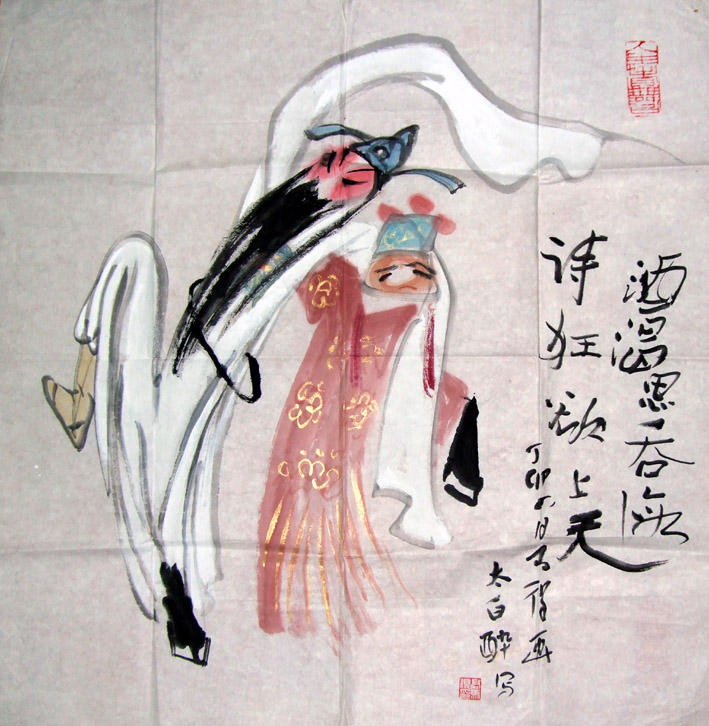 酒渴思吞海
诗狂欲上天
丁卯 月马得画
太白醉写